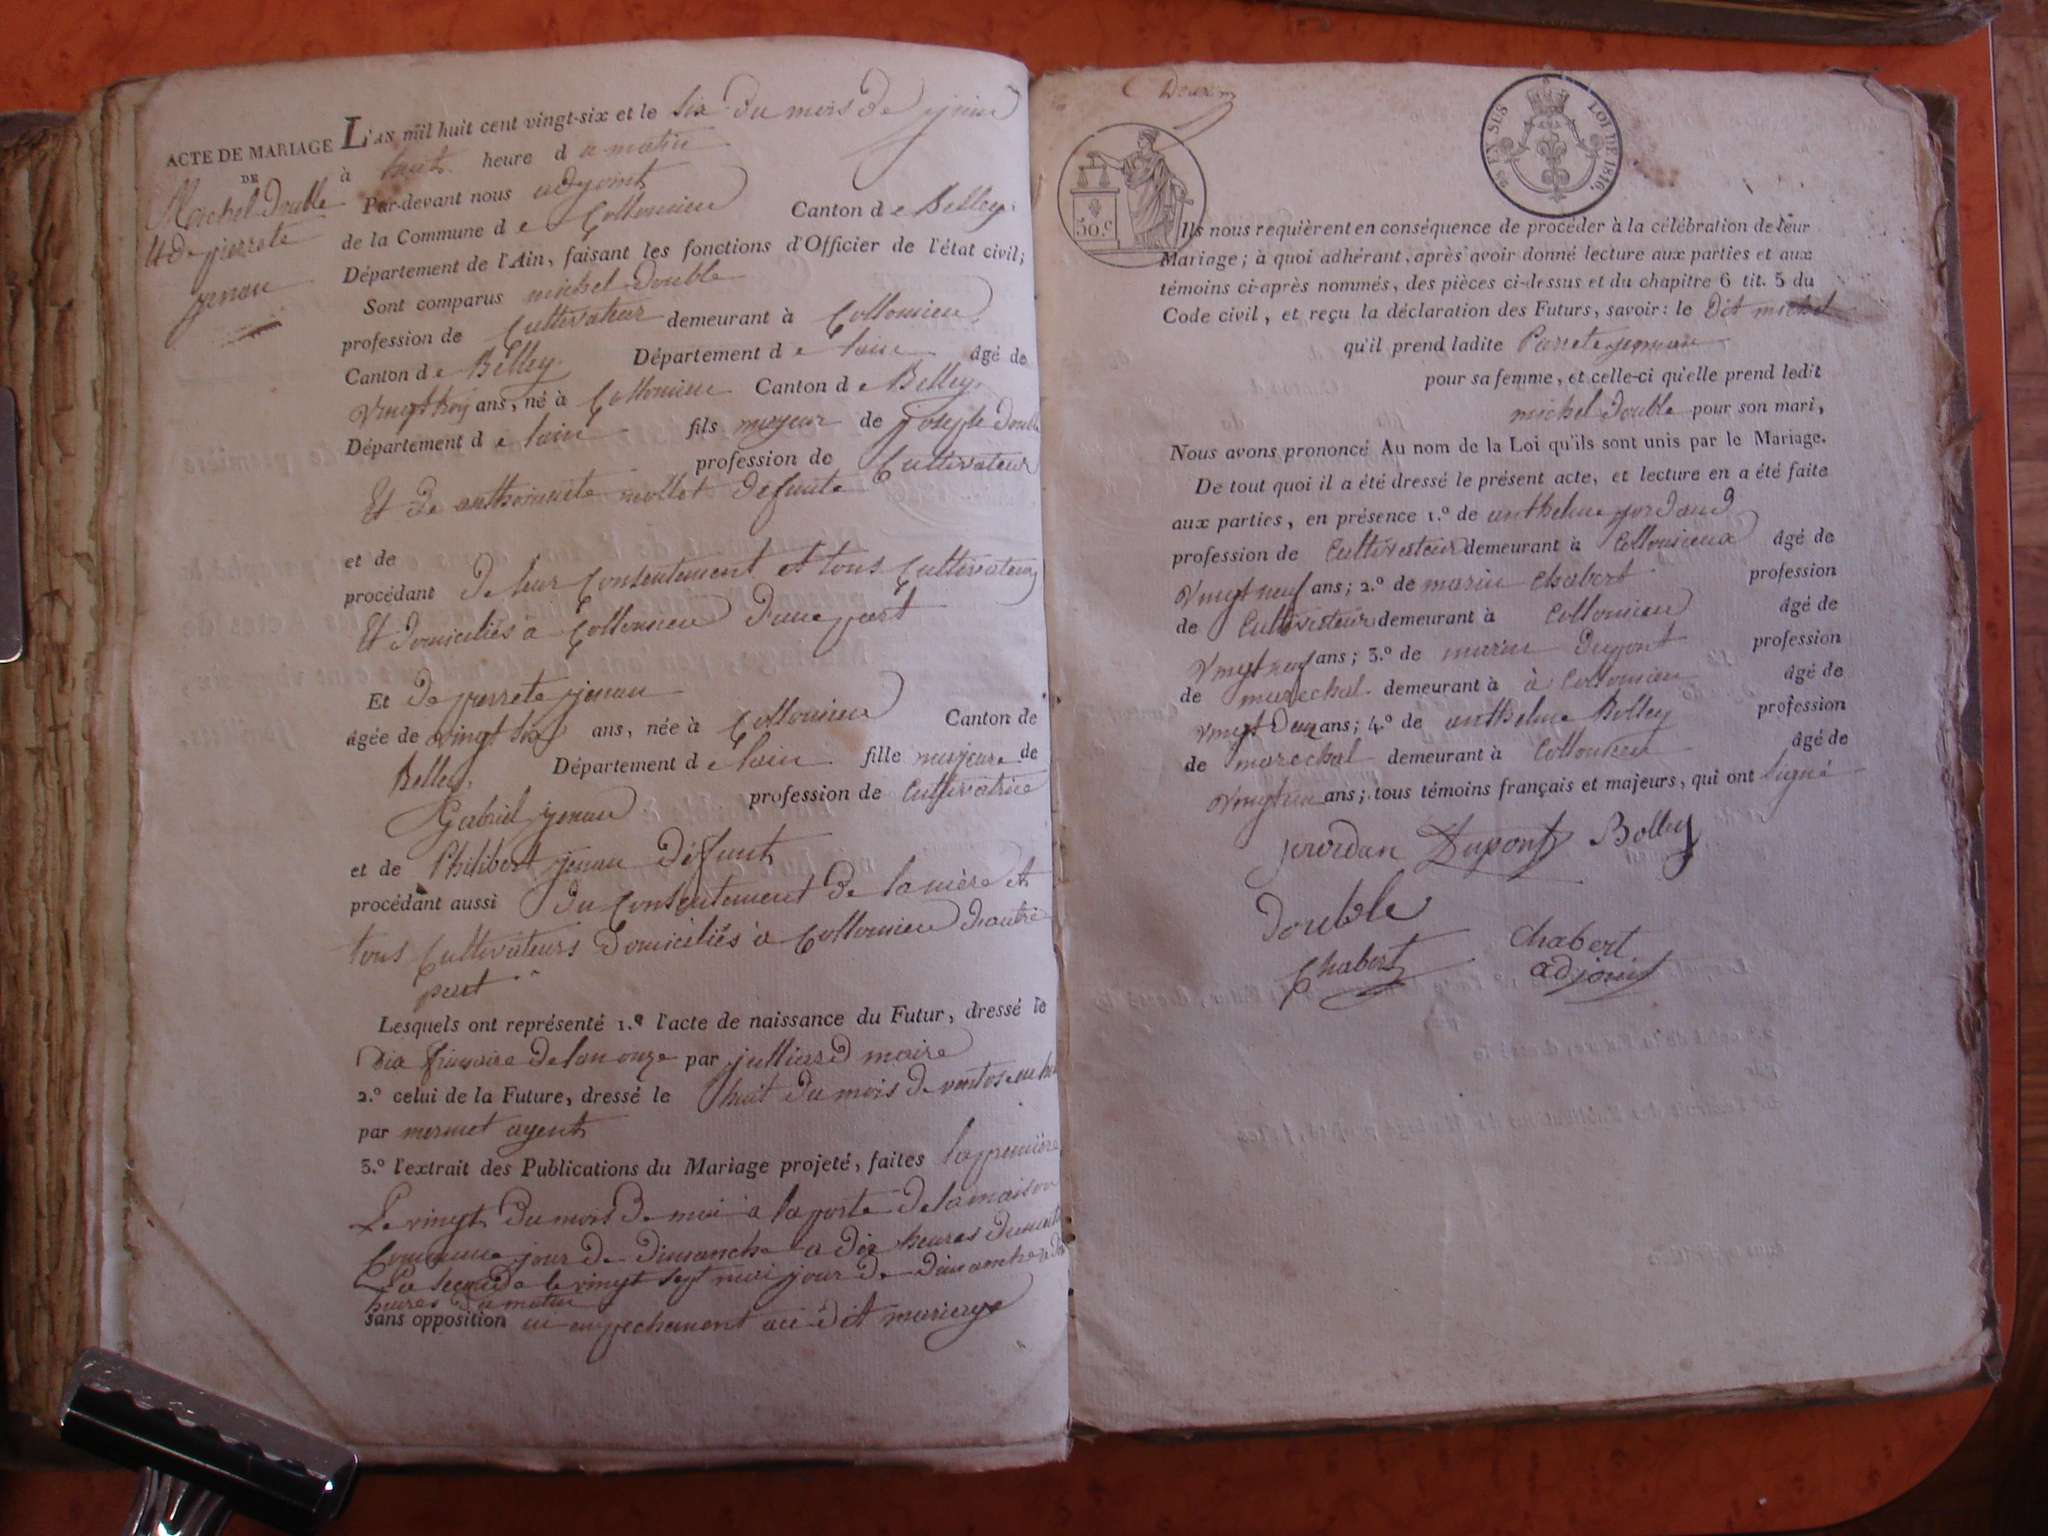 ACTE DE MARIAGE
DE
Michel Double
Et De pierrete
jenau
L'AN mil huit cent vingt-six et le six du mois de juin
à huit heure du matin
Par-devant nous adjoint
de la Commune de Collomieu Canton de Belley
Département de l'Ain, faisant les fonctions d'Officier de l'état civil;
Sont comparus michel Double
profession de Cultivateur demeurant à Collomieu
Canton de Belley Département de lain âgé de
Vingt troy ans, né à Collomieu Canton de Belley
Département de lain fils mayeur de joseph Double
profession de Cultivateur
Et De anthoinaite mollet Defunte
et de
procédant De leur Consentement et tous Cultivateurs
Et Domiciliés à Collomieu Dune part
Et De pierrete jenau
âgée de vingt six ans, née à Collomieu Canton de
Belley Département de lain fille majeure de
Gabriel jenau profession de Cultivatrice
et de Philibert jenau Défunt
procédant aussi Du Consentement De la mère et
tous Cultivateurs Domiciliés à Collomieu Dautre
part
Lesquels ont représenté 1.º l'acte de naissance du Futur, dressé le
Dix frimaire De lan onze par julliard maire
2.º celui de la Future, dressé le huit Du mois De ventose an huit
par mermet agent
3.º l'extrait des Publications du Mariage projeté, faites la premiere
Le vingt Du mois De mai a la porte De la maison
Commune jour De Dimanche a Dix heures Du matin
La seconde le vingt sept mai jour De Dimanche a Dix
heures Du matin
sans opposition ni empechement au Dit mariage
Deux
50.c
25 EN SUS LOI DE 1816.
Ils nous requièrent en conséquence de procéder à la célébration de leur
Mariage; à quoi adhérant, après avoir donné lecture aux parties et aux
témoins ci-après nommés, des pièces ci-dessus et du chapitre 6 tit. 5 du
Code civil, et reçu la déclaration des Futurs, savoir: le Dit michel
qu'il prend ladite Pierrete jenau
pour sa femme, et celle-ci qu'elle prend ledit
michel Double pour son mari,
Nous avons prononcé Au nom de la Loi qu'ils sont unis par le Mariage.
De tout quoi il a été dressé le présent acte, et lecture en a été faite
aux parties, en présence 1.º de anthelme jordand
profession de Cultivateur demeurant à Collomieux âgé de
Vingt neuf ans; 2.º de marin Chabert profession
de Cultivateur demeurant à Collomieu âgé de
Vingt neuf ans; 3.º de marin Dupont profession
de marechal demeurant à à Collomieu âgé de
Vingt Deux ans; 4.º de anthelme Bolley profession
de marechal demeurant à Collomieu âgé de
ans; tous témoins français et majeurs, qui ont signé
jourdan Dupont Bolley
Double
Chabert Chabert
adjoint